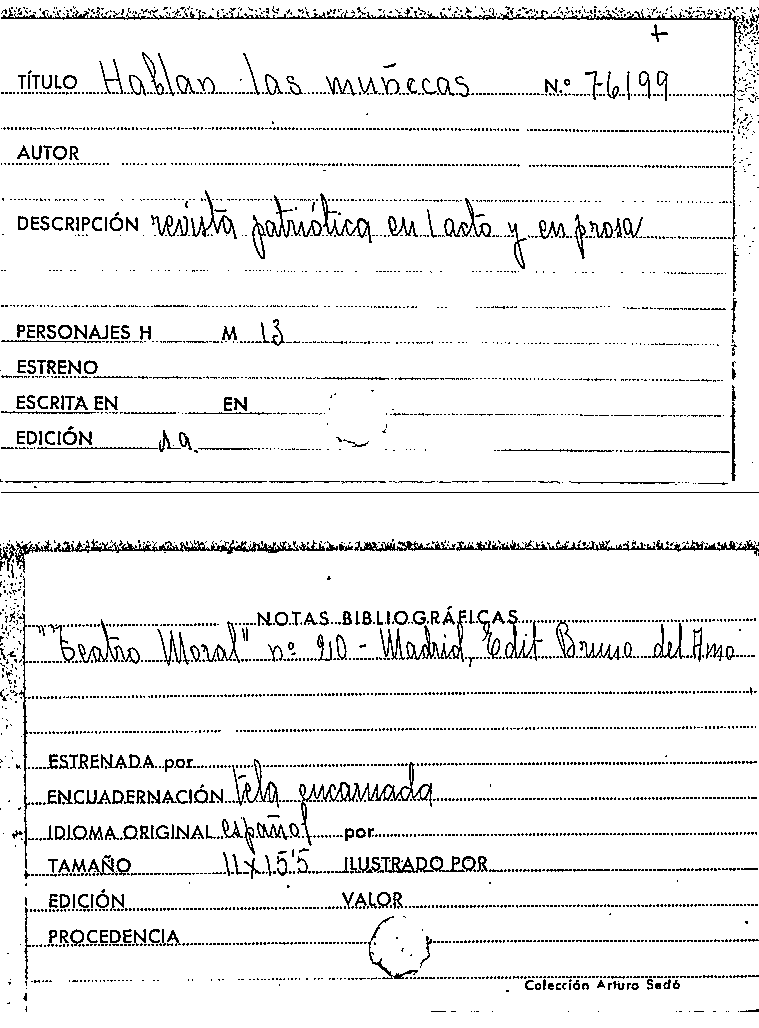 +
TÍTULO Hablan las muñecas N.º 76199
AUTOR
DESCRIPCIÓN revista patriótica en 1 acto y en prosa
PERSONAJES H M 13
ESTRENO
ESCRITA EN EN
EDICIÓN s.a.
NOTAS BIBLIOGRÁFICAS
"Teatro Moral" nº 20 - Madrid, Edit Bruno del Amo
ESTRENADA por
ENCUADERNACIÓN tela encarnada
IDIOMA ORIGINAL español por
TAMAÑO 11x15'5 ILUSTRADO POR
EDICIÓN VALOR
PROCEDENCIA
Colección Arturo Sedó